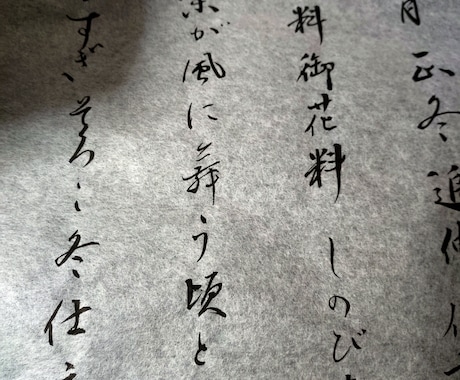 月 正冬進
料御花料 しのび
が風に舞う頃と
すぎ、そろ〻冬仕